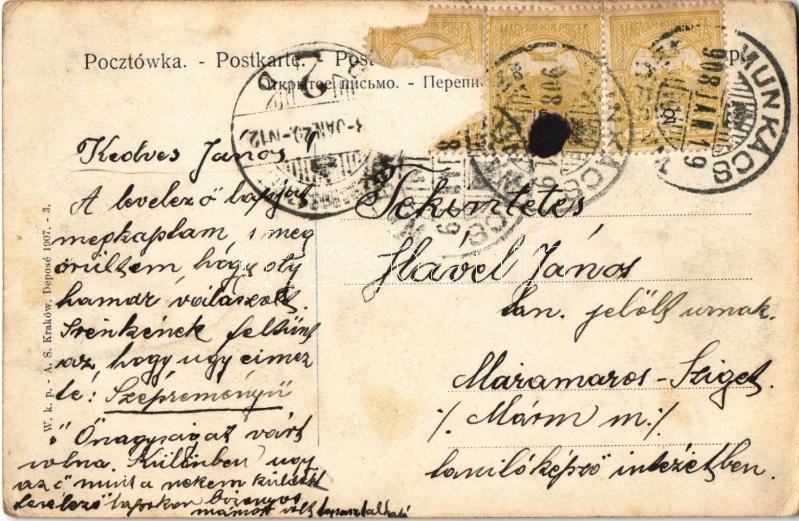 Pocztówka. - Postkarte. - Post
Открытое письмо. - Перепи
MAGYAR KIR. POSTA
MUNKÁCS
908 JAN 19
Kedves János!
A levelező lapját
megkaptam s meg
örültem, hogy oly
hamar válaszolt.
Irénkének feltűnt
az, hogy ugy cimez
te: Szépreményű
Ő Önagyságat várt
volna. Különben ugy
az ő mint a nekem küldött
levelező lapokon bizonyos
mámor volt tapasztalható
Tekintetes
Havel János
tan. jelölt urnak.
Máramaros-Sziget.
/. Márm m. /.
tanitóképző intézetben.
W. k. p. - A. S. Kraków. Deposé 1907. - 3.